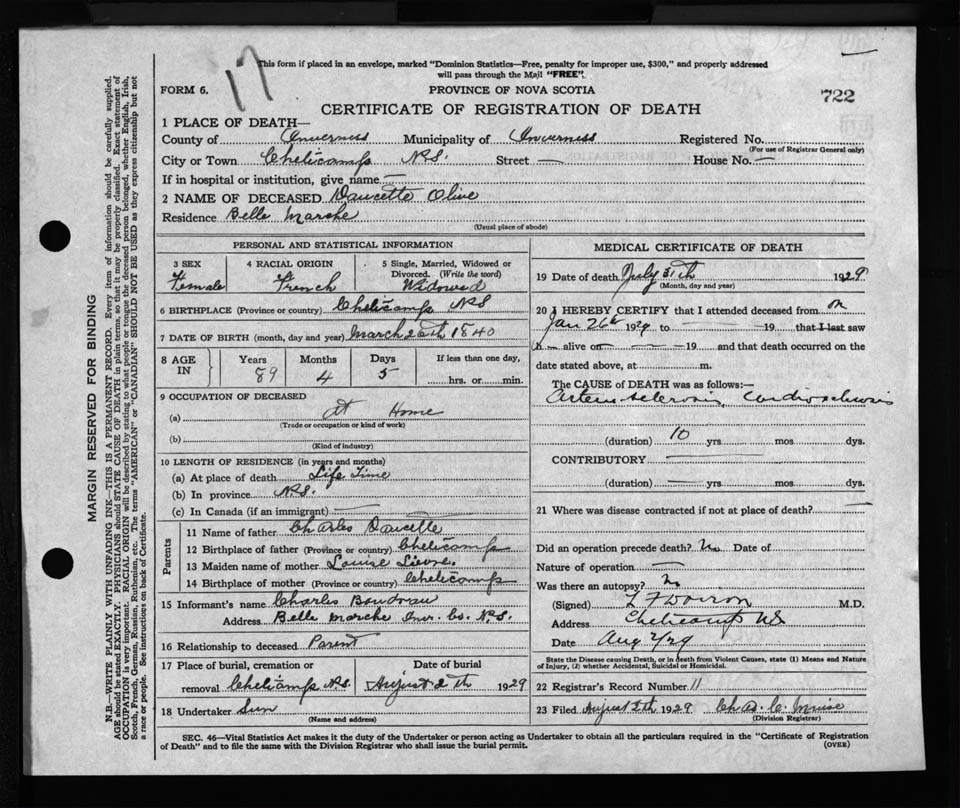 17
This form if placed in an envelope, marked "Dominion Statistics—Free, penalty for improper use, $300," and properly addressed
will pass through the Mail "FREE".
FORM 6.
PROVINCE OF NOVA SCOTIA
722
CERTIFICATE OF REGISTRATION OF DEATH
1 PLACE OF DEATH—
County of Inverness Municipality of Inverness Registered No.
(For use of Registrar General only)
City or Town Cheticamp N.S. Street — House No. —
If in hospital or institution, give name —
2 NAME OF DECEASED Doucette Olive
Residence Belle Marche
(Usual place of abode)
PERSONAL AND STATISTICAL INFORMATION
3 SEX 4 RACIAL ORIGIN 5 Single, Married, Widowed or
Divorced. (Write the word)
Female French Widowed
6 BIRTHPLACE (Province or country) Cheticamp N.S
7 DATE OF BIRTH (month, day and year) March 26th 1840
8 AGE IN Years Months Days If less than one day,
89 4 5 hrs. or min.
9 OCCUPATION OF DECEASED
(a) At Home
(Trade or occupation or kind of work)
(b)
(Kind of industry)
10 LENGTH OF RESIDENCE (in years and months)
(a) At place of death Life Time
(b) In province N.S.
(c) In Canada (if an immigrant) —
Parents
11 Name of father Charles Doucette
12 Birthplace of father (Province or country) Cheticamp
13 Maiden name of mother Louise
14 Birthplace of mother (Province or country) Cheticamp
15 Informant's name Charles Boudreau
Address Belle Marche Inv. Co. N.S.
16 Relationship to deceased Parent
17 Place of burial, cremation or Date of burial
removal Cheticamp N.S. August 2th 1929
18 Undertaker Sun
(Name and address)
MEDICAL CERTIFICATE OF DEATH
19 Date of death July 31th 1929
(Month, day and year)
20 I HEREBY CERTIFY that I attended deceased from on
Jan 26th 1929 to — 19 that I last saw
h— alive on — 19 and that death occurred on the
date stated above, at m.
The CAUSE OF DEATH was as follows:—
Arterio sclerosis, Cardiosclerosis
(duration) 10 yrs. mos. dys.
CONTRIBUTORY —
(duration) — yrs. — mos. dys.
21 Where was disease contracted if not at place of death? —
Did an operation precede death? No Date of
Nature of operation —
Was there an autopsy? No
(Signed) L F Doiron M.D.
Address Cheticamp NS
Date Aug 2/29
State the Disease causing Death, or in death from Violent Causes, state (1) Means and Nature
of Injury, (2) whether Accidental, Suicidal or Homicidal.
22 Registrar's Record Number 11
23 Filed August 2th 1929 Chas. C.
(Division Registrar)
SEC. 46—Vital Statistics Act makes it the duty of the Undertaker or person acting as Undertaker to obtain all the particulars required in the "Certificate of Registration
of Death" and to file the same with the Division Registrar who shall issue the burial permit.
(OVER)
MARGIN RESERVED FOR BINDING
N.B.—WRITE PLAINLY WITH UNFADING INK—THIS IS A PERMANENT RECORD. Every item of information should be carefully supplied.
AGE should be stated EXACTLY. PHYSICIANS should STATE CAUSE OF DEATH in plain terms, so that it may be properly classified. Exact statement of
OCCUPATION is very important. RACIAL ORIGIN will be described by stating to what people or tongue the deceased person belonged, whether English, Irish,
Scotch, French, German, Russian, Ruthenian, etc. The terms "AMERICAN" or "CANADIAN" SHOULD NOT BE USED as they express citizenship but not
a race or people. See instructions on back of Certificate.